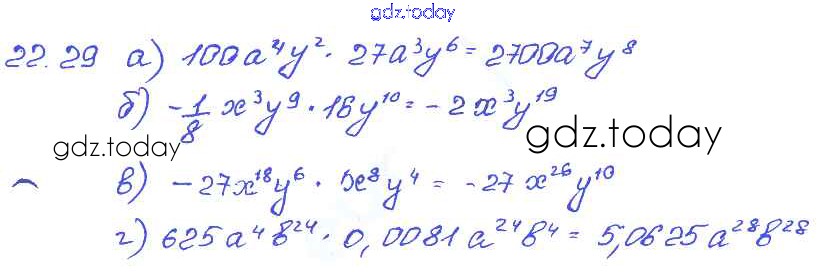 gdz.today
22.29 а) 100a⁴y² · 27a³y⁶ = 2700a⁷y⁸
б) -1/8 x³y⁹ · 16y¹⁰ = -2x³y¹⁹
gdz.today
gdz.today
в) -27x¹⁸y⁶ · x⁸y⁴ = -27x²⁶y¹⁰
г) 625a⁴b²⁴ · 0,0081a²⁴b⁴ = 5,0625a²⁸b²⁸